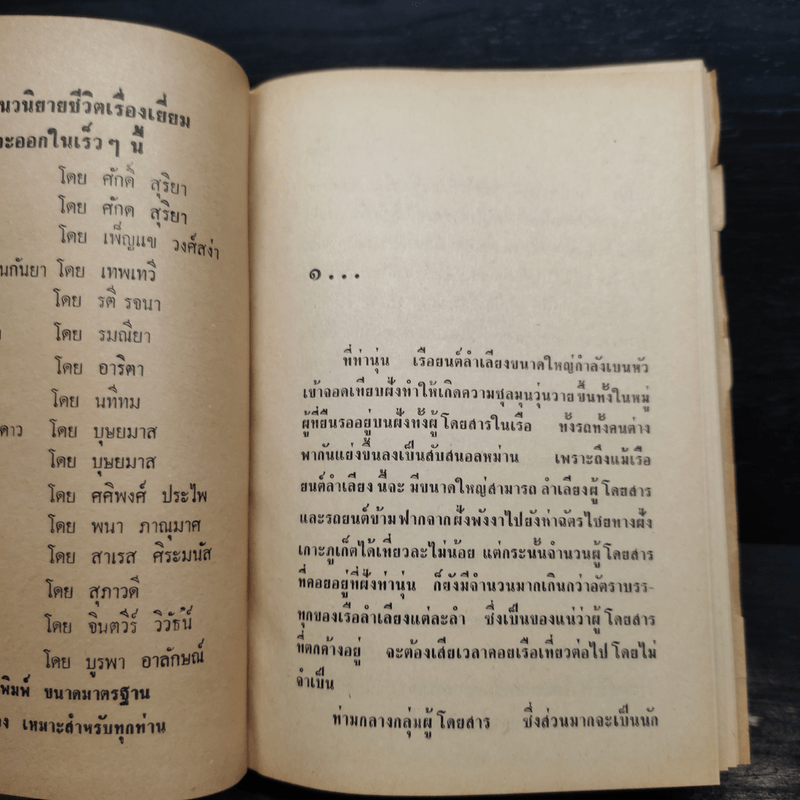 นวนิยายชีวิตเรื่องเยี่ยม
จะออกในเร็วๆ นี้
โดย ศักดิ์ สุริยา
โดย ศักด สุริยา
โดย เพ็ญแข วงศ์สง่า
นกันยา โดย เทพเทวี
โดย รตี รจนา
โดย รมณียา
โดย อาริตา
โดย นทีทม
ดาว โดย บุษยมาส
โดย บุษยมาส
โดย ศศิพงศ์ ประไพ
โดย พนา ภาณุมาศ
โดย สาเรส ศิระมนัส
โดย สุภาวดี
โดย จินตวีร์ วิวัธน์
โดย บูรพา อาลักษณ์
พิมพ์ ขนาดมาตรฐาน
เหมาะสำหรับทุกท่าน
๑...
ที่ท่านุ่น เรือยนต์ลำเลียงขนาดใหญ่กำลังเบนหัว
เข้าจอดเทียบฝั่งทำให้เกิดความชุลมุนวุ่นวายขึ้นทั้งในหมู่
ผู้ที่ยืนรออยู่บนฝั่งทั้งผู้โดยสารในเรือ ทั้งรถทั้งคนต่าง
พากันแย่งขึ้นลงเป็นสับสนอลหม่าน เพราะถึงแม้เรือ
ยนต์ลำเลียงนี้จะมีขนาดใหญ่สามารถลำเลียงผู้โดยสาร
และรถยนต์ข้ามฟากจากฝั่งพังงาไปยังท่าฉัตรไชยทางฝั่ง
เกาะภูเก็ตได้เที่ยวละไม่น้อย แต่กระนั้นจำนวนผู้โดยสาร
ที่คอยอยู่ที่ฝั่งท่านุ่น ก็ยังมีจำนวนมากเกินกว่าอัตราบรร-
ทุกของเรือลำเลียงแต่ละลำ ซึ่งเป็นของแน่ว่าผู้โดยสาร
ที่ตกค้างอยู่ จะต้องเสียเวลาคอยเรือเที่ยวต่อไปโดยไม่
จำเป็น
ท่ามกลางกลุ่มผู้โดยสาร ซึ่งส่วนมากจะเป็นนัก